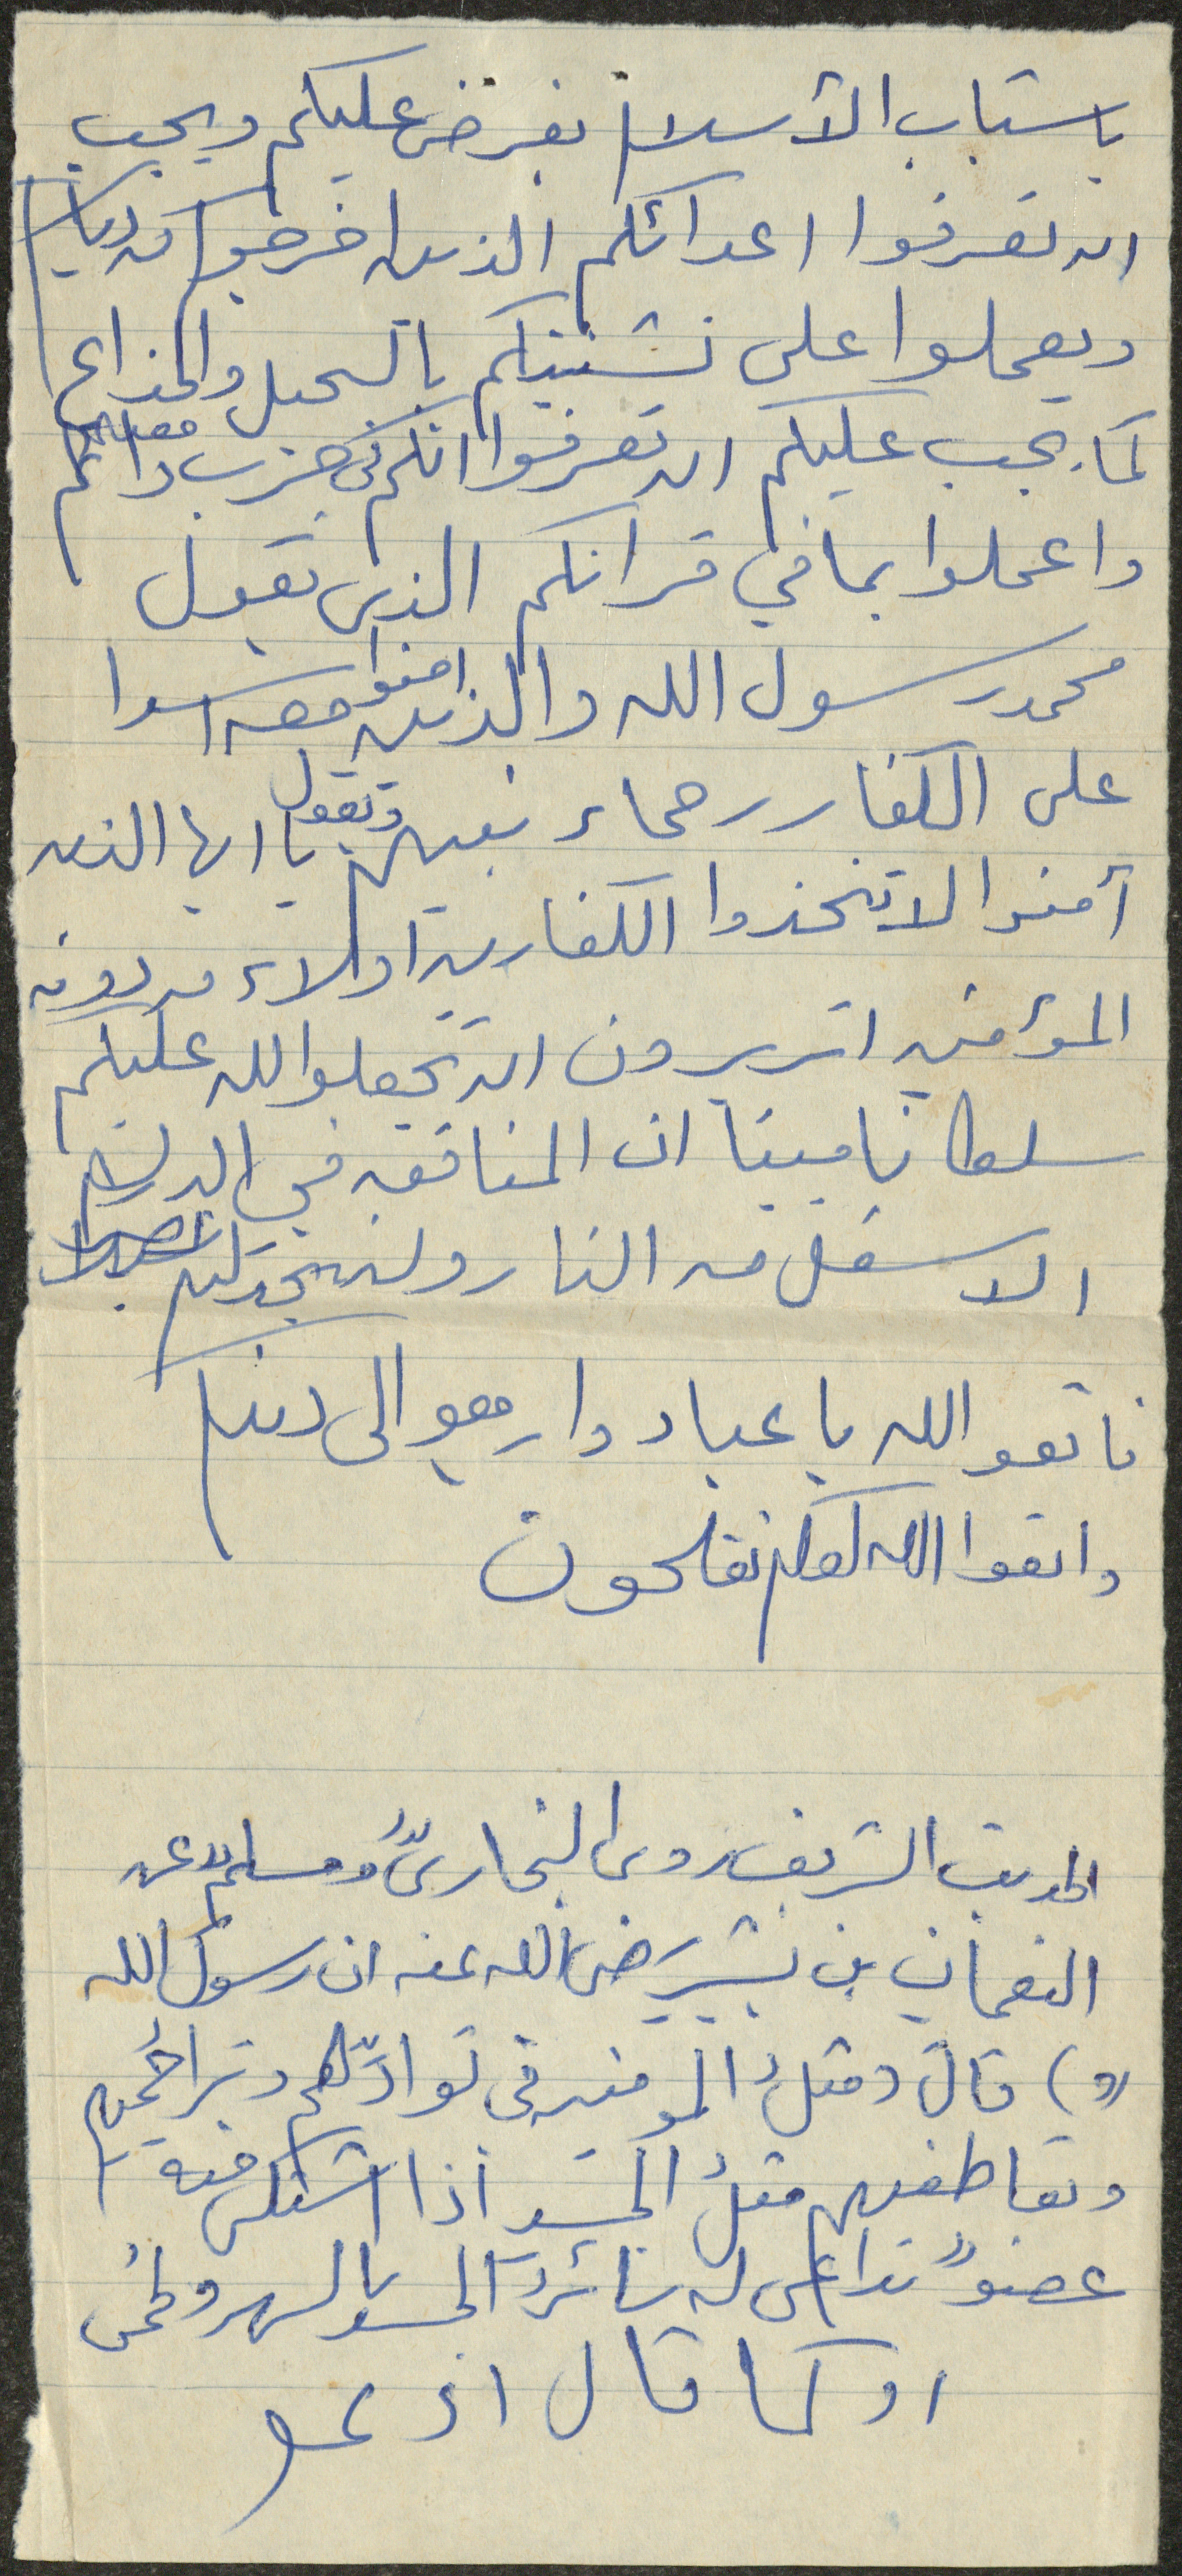 ياشباب الأسلام يفرض عليكم ويجب
ان تعرفوا اعدائكم الذين اخرجوكم من دياركم
ويعملوا على تشتيتكم بالحيل والخداع
كما يجب عليكم ان تعرفوا انكم في حرب دائم معهم
واعملوا بما في قرانكم الذي يقول
محمد رسول الله والذين امنوا معه اشدا
على الكفار رحماء بينهم ويقول يا ايها الذين
آمنوا لا تتخذوا الكفارين اولاء من دون
المؤمنين اتريدون ان تجعلوا لله عليكم
سلطانا مبينا ان المنافقين في الدرك
الاسفل من النار ولن تجد لهم نصيرا
فاتقو الله يا عباد وارجعو الى دينكم
واتقوا الله لعلكم تفلحون
الحديث الشريف روى البخاريّ ومسلمٌ عن
النعمان بن بشير رضى الله عنه ان رسول الله
(ص) قال مثلُ المومنين في توادّهم وتراحُمِهم
وتعاطفهم مثلُ الجسد اذا اشتكى منه
عضوٌ تداعى له سائرُ الجسد بالسهر والحمى
او كما قال ادعو